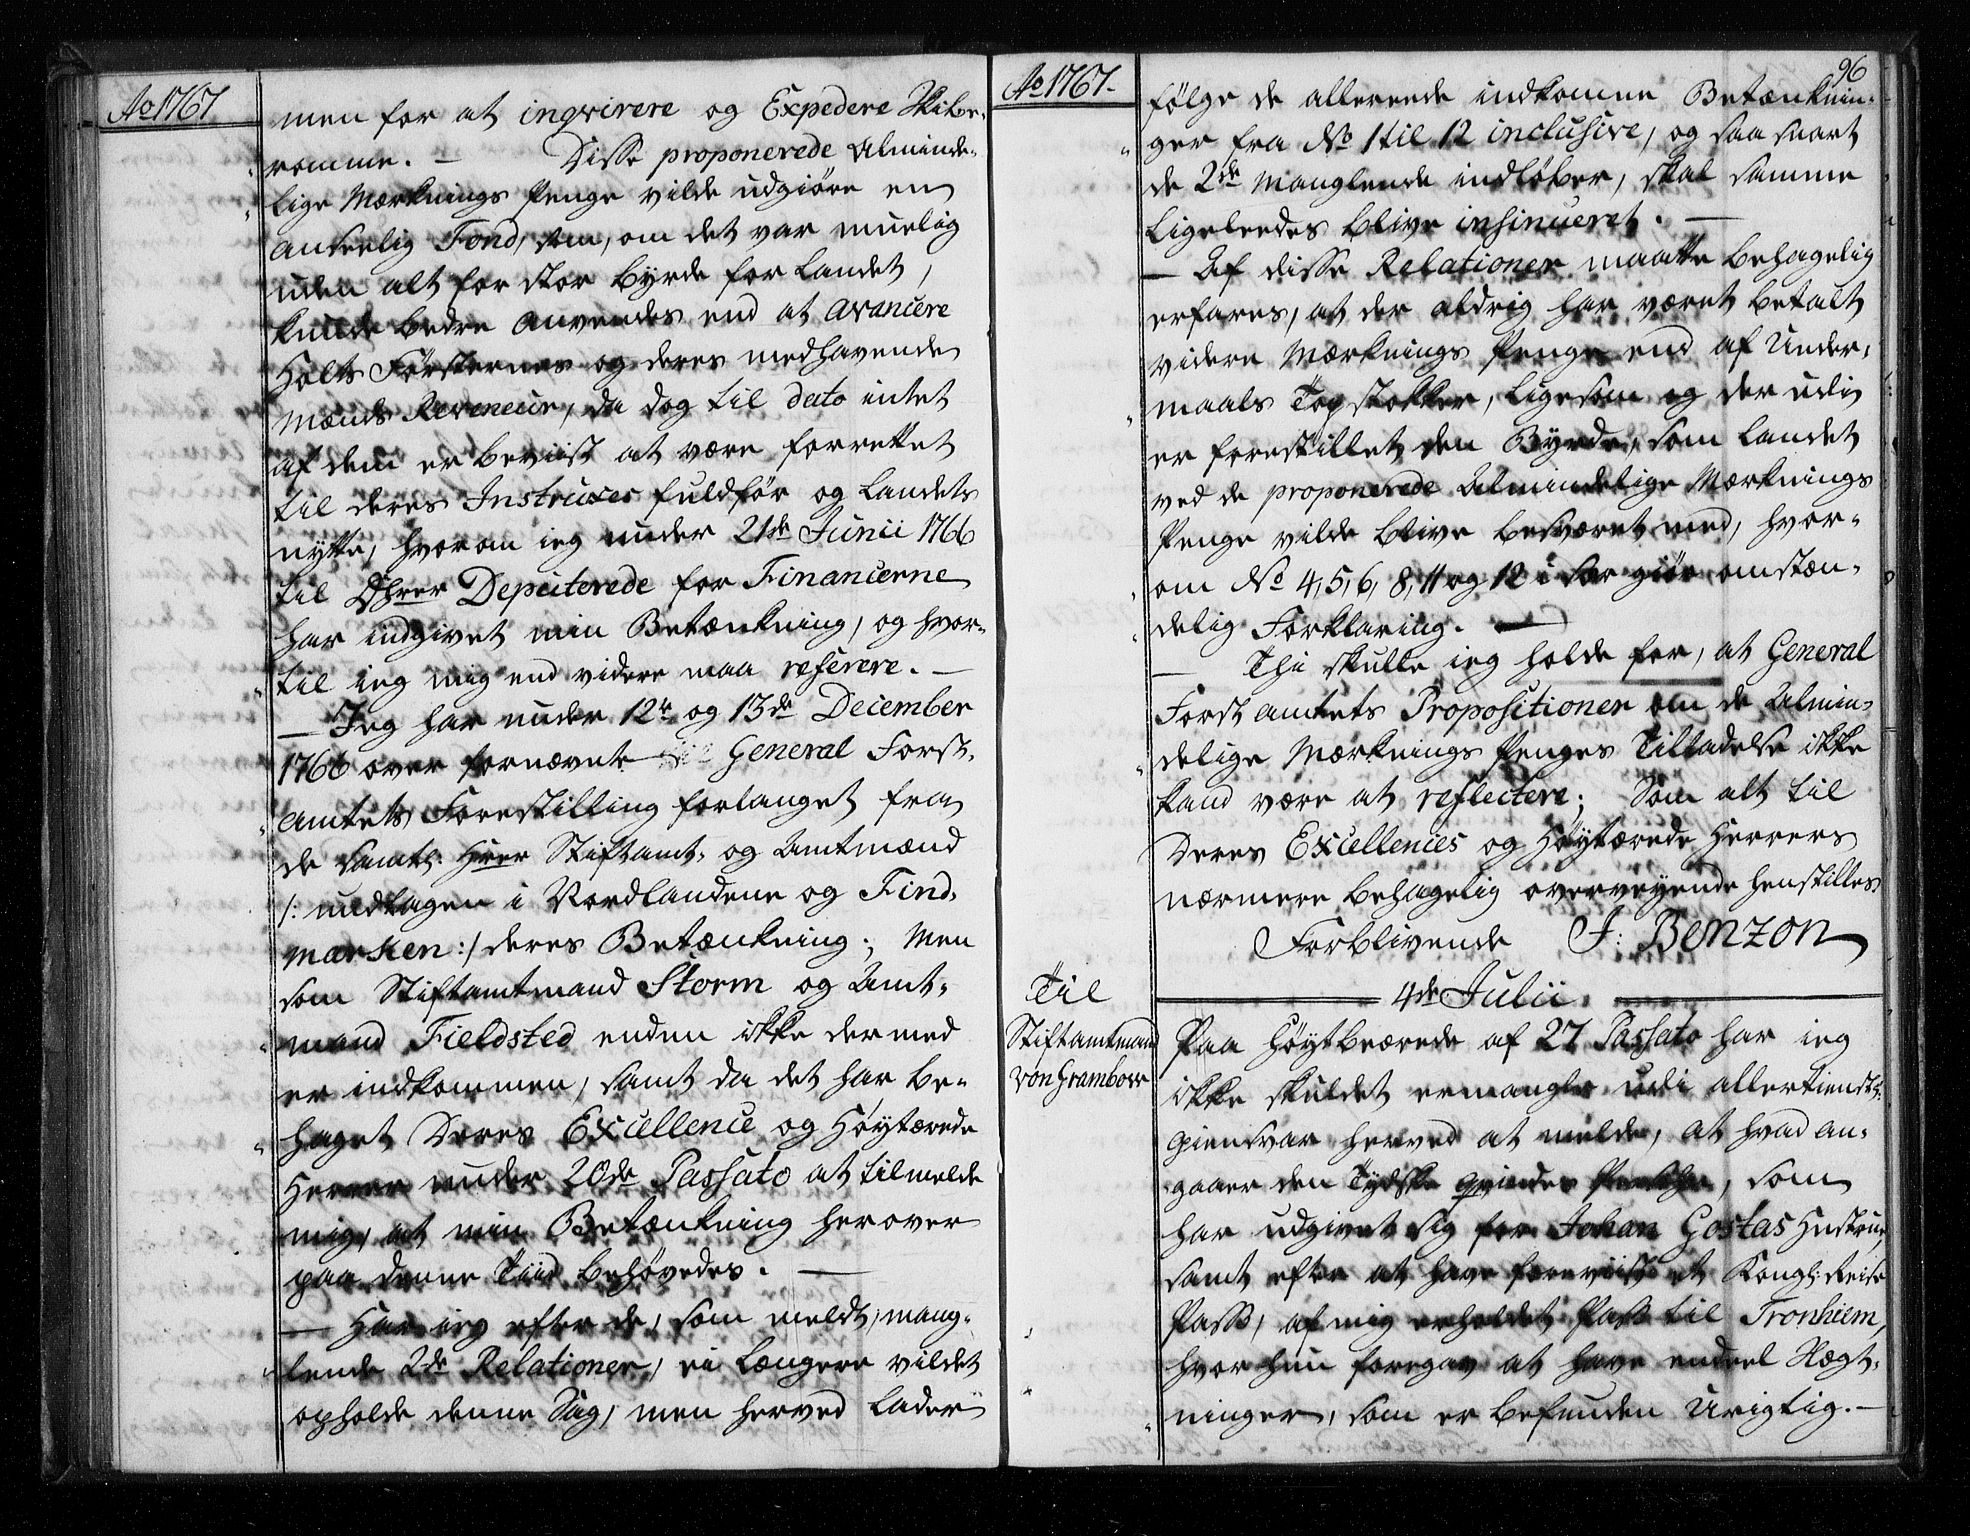 Ao 1767
men for at inqvirere og Expedere Skibe-
romme. — Disse proponerede Alminde-
lige Mærknings Penge vilde udgiøre en
anseelig Fond, som, om det var mueligt
uden alt for stor byrde for Landet,
kunde bedre anvendes end at avancere
Holts Försternes og deres medhavende
Mænds Reveneur, da dog til dato intet
af dem er beviist at være forrettet
til deres Instruxes fuldför og Landets
nytte, hvorom ieg under 21de Junii 1766
til Dhrrer Deputerede for Financerne
har indgivet min Betænkning, og hvor-
til ieg mig end videre maa referere. —
— Jeg har under 12te og 13de December
1766 over fornævnte General Forst-
amtets Forestilling forlanget fra
de samtl: Hrrer Stiftamt- og Amtmænd
/: undtagen i Nordlandene og Find-
marken :/ deres Betænkning; Men
som Stiftamtmand Storm og Amt-
mand Fieldsted enden ikke dermed
er indkommen, samt da det har be-
haget Deres Excellence og Høytærede
Herrer under 20de Passato at tilmelde
mig, at min Betænkning herover
paa denne Tiid behøvedes. —
— Har ieg efter de, som meldt, mang-
lende 2de Relationer, ei længere vildet
opholde denne Sag, men herved lader
Ao 1767-
96
følge de allerede indkomne Betænknin-
ger fra No 1 til 12 inclusive, og saa snart
de 2de manglende indløber, skal samme
ligeledes blive insinueret. —
— Af disse Relationer maatte behagelig
erfares, at der aldrig har været betalt
videre Mærknings Penge end af Under-
maals Topstokker, ligesom og der udi
er forestillet den Byrde, som Landet
ved de proponerede Almindelige Mærknings
Penge vilde blive besværet med, hvor-
om No 4, 5, 6, 8, 11 og 12 i sær giør omstæn-
delig Forklaring. —
— Thi skulle ieg holde for, at General
Forst amtets Propositioner om de Almin-
delige Mærknings Penges Tilladelse ikke
kand være at reflectere; Som alt til
Deres Excellences og Høytærede Herrers
nærmere behagelig overveyende henstilles
Forblivende J: Benzon
4de Julii.
Til
Stiftamtmand
von Grambow
Paa Høytbeærede af 27 Passato har ieg
ikke skuldet ermangle udi allertienstl:
giensvar herved at melde, at hvad an-
gaaer den Tydske qvindes Persohn, som
har udgivet sig for Johan Gostas Hustrue,
samt efter at have foreviist et Kongl: Reise
Pass, af mig erholdet Pass til Tronhiem,
hvor hun foregav at have endeel Slægt-
ninger, som er befunden Urigtig. —